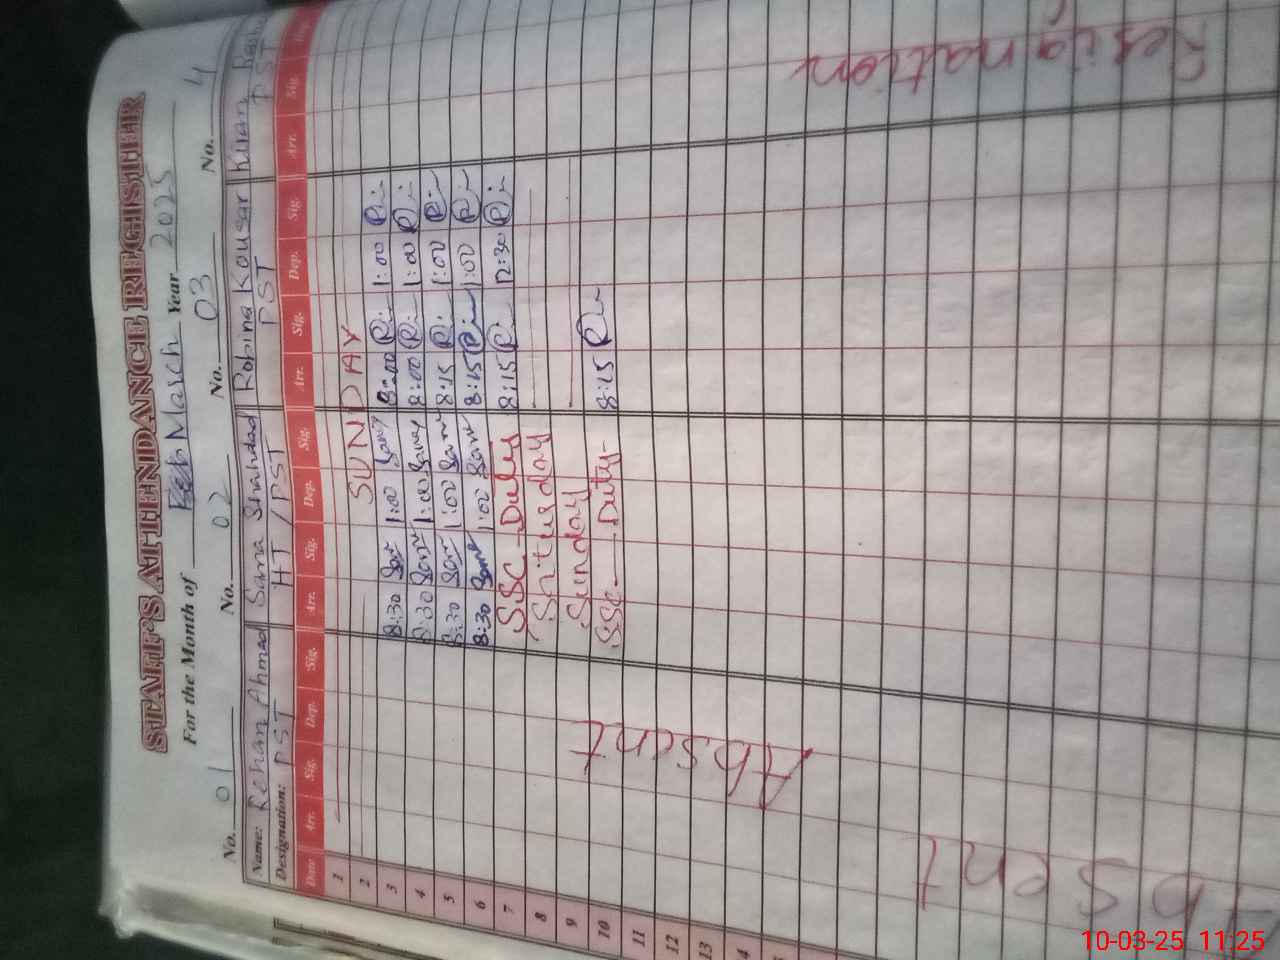 STAFF'S ATTENDANCE REGISTER
For the Month of Feb March Year 2025
No. 01 No. 02 No. 03 No. 4
Name: Rehan Ahmad Sama Shahdad Robina Kousar Kiran
Designation: PST HT / PST PST PST
Date Arr. Sig. Dep. Sig. Arr. Sig. Dep. Sig. Arr. Sig. Dep. Sig. Arr. Sig.
1
2 SUNDAY
3 8:30 1:00 8:00 1:00
4 8:30 1:00 8:00 1:00
5 8:30 1:00 8:15 1:00
6 8:30 1:00 8:15 1:00
7 SSC - Duty 8:15 12:30
8 Saturday
9 Sunday
10 SSC Duty 8:15
11
12
13
Absent
Absent
Resignation
10-03-25 11:25